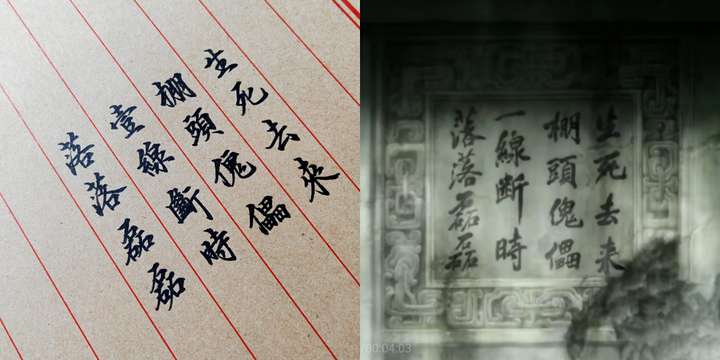 生死去來
棚頭傀儡
壹線斷時
落落磊磊
生死去来
棚頭傀儡
一線断時
落落磊磊
00:04:03